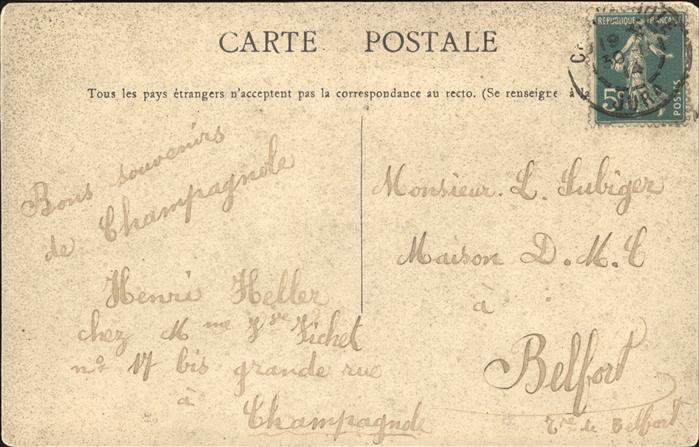 CARTE POSTALE
Tous les pays étrangers n'acceptent pas la correspondance au recto. (Se renseigner à la
REPUBLIQUE FRANÇAISE
5c
POSTES
JURA
Bons souvenirs
de Champagnole
Henri Heller
chez Mme Vve Fichet
no 17 bis grande rue
à
Champagnole
Monsieur L. Subiger
Maison D.M.C
à
Belfort
Tre de Belfort